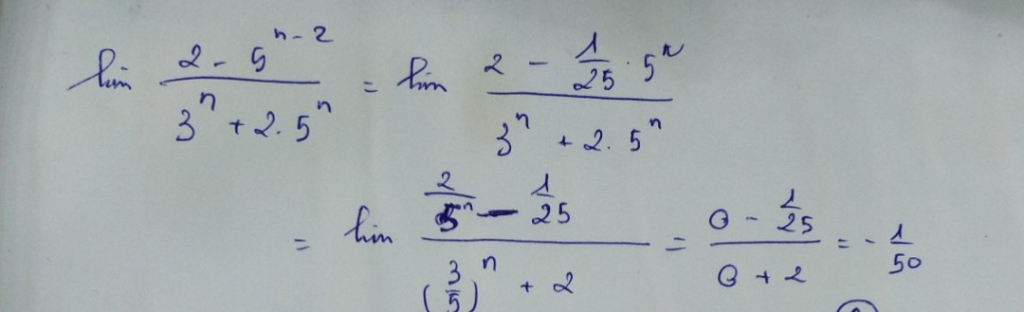 lim (2 - 5^(n-2)) / (3^n + 2.5^n) = lim (2 - 1/25 . 5^n) / (3^n + 2.5^n)
= lim (2/5^n - 1/25) / ((3/5)^n + 2) = (0 - 1/25) / (0 + 2) = - 1/50